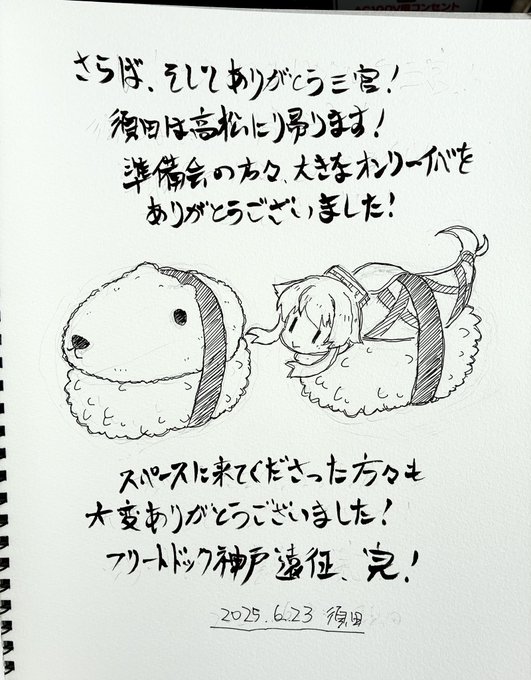 AC100V用コンセント
さらば、そしてありがとう三宮!
須田は高松に帰ります!
準備会の方々、大きなオンリーイベを
ありがとうございました!
スペースに来てくださった方々も
大変ありがとうございました!
フリートドック神戸遠征、完!
2025.6.23 須田